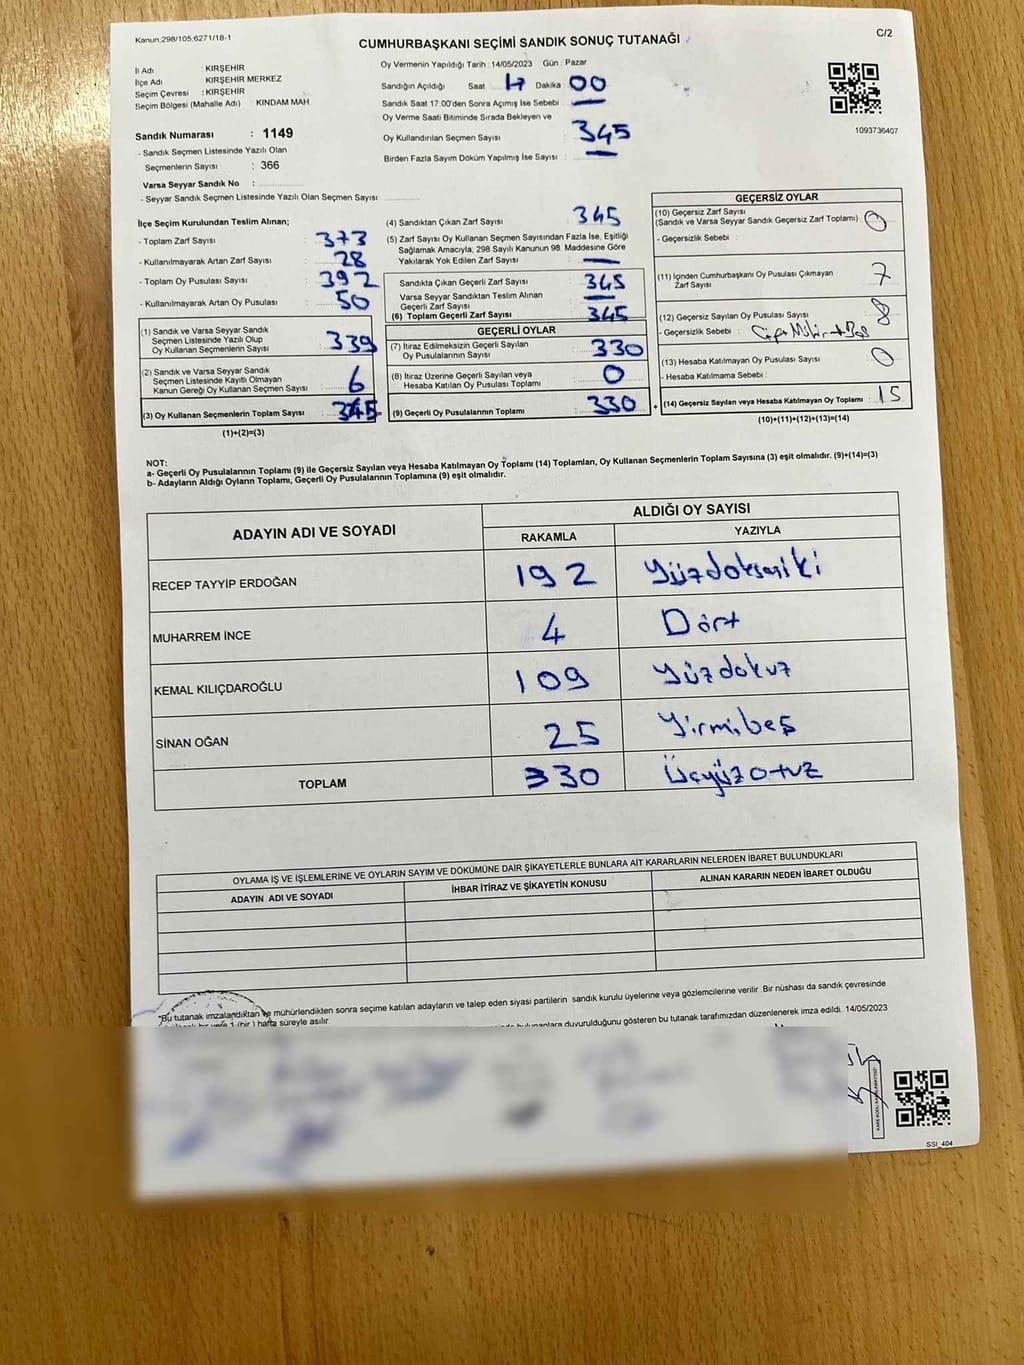 Kanun:298/105:6271/18-1
CUMHURBAŞKANI SEÇİMİ SANDIK SONUÇ TUTANAĞI
C/2
İl Adı : KIRŞEHİR
İlçe Adı : KIRŞEHİR MERKEZ
Seçim Çevresi : KIRŞEHİR
Seçim Bölgesi (Mahalle Adı) : KINDAM MAH
Sandık Numarası : 1149
- Sandık Seçmen Listesinde Yazılı Olan
Seçmenlerin Sayısı : 366
Varsa Seyyar Sandık No :
- Seyyar Sandık Seçmen Listesinde Yazılı Olan Seçmen Sayısı
Oy Vermenin Yapıldığı Tarih : 14/05/2023 Gün : Pazar
Sandığın Açıldığı Saat 17 Dakika 00
Sandık Saat 17:00'den Sonra Açımış İse Sebebi
Oy Verme Saati Bitiminde Sırada Bekleyen ve
Oy Kullandırılan Seçmen Sayısı : 345
Birden Fazla Sayım Döküm Yapılmış İse Sayısı :
1093736407
İlçe Seçim Kurulundan Teslim Alınan;
- Toplam Zarf Sayısı : 373
- Kullanılmayarak Artan Zarf Sayısı : 28
- Toplam Oy Pusulası Sayısı : 392
- Kullanılmayarak Artan Oy Pusulası : 50
(1) Sandık ve Varsa Seyyar Sandık
Seçmen Listesinde Yazılı Olup
Oy Kullanan Seçmenlerin Sayısı : 339
(2) Sandık ve Varsa Seyyar Sandık
Seçmen Listesinde Kayıtlı Olmayan
Kanun Gereği Oy Kullanan Seçmen Sayısı : 6
(3) Oy Kullanan Seçmenlerin Toplam Sayısı : 345
(1)+(2)=(3)
(4) Sandıktan Çıkan Zarf Sayısı : 345
(5) Zarf Sayısı Oy Kullanan Seçmen Sayısından Fazla İse, Eşitliği
Sağlamak Amacıyla; 298 Sayılı Kanunun 98. Maddesine Göre
Yakılarak Yok Edilen Zarf Sayısı :
Sandıkta Çıkan Geçerli Zarf Sayısı : 345
Varsa Seyyar Sandıktan Teslim Alınan
Geçerli Zarf Sayısı
(6) Toplam Geçerli Zarf Sayısı : 345
GEÇERLİ OYLAR
(7) İtiraz Edilmeksizin Geçerli Sayılan
Oy Pusulalarının Sayısı : 330
(8) İtiraz Üzerine Geçerli Sayılan veya
Hesaba Katılan Oy Pusulası Toplamı : 0
(9) Geçerli Oy Pusulalarının Toplamı : 330
GEÇERSİZ OYLAR
(10) Geçersiz Zarf Sayısı
(Sandık ve Varsa Seyyar Sandık Geçersiz Zarf Toplamı) : 0
- Geçersizlik Sebebi :
(11) İçinden Cumhurbaşkanı Oy Pusulası Çıkmayan
Zarf Sayısı : 7
(12) Geçersiz Sayılan Oy Pusulası Sayısı : 8
- Geçersizlik Sebebi :
(13) Hesaba Katılmayan Oy Pusulası Sayısı : 0
- Hesaba Katılmama Sebebi :
+ (14) Geçersiz Sayılan veya Hesaba Katılmayan Oy Toplamı : 15
(10)+(11)+(12)+(13)=(14)
NOT:
a- Geçerli Oy Pusulalarının Toplamı (9) ile Geçersiz Sayılan veya Hesaba Katılmayan Oy Toplamı (14) Toplamları, Oy Kullanan Seçmenlerin Toplam Sayısına (3) eşit olmalıdır. (9)+(14)=(3)
b- Adayların Aldığı Oyların Toplamı, Geçerli Oy Pusulalarının Toplamına (9) eşit olmalıdır.
ADAYIN ADI VE SOYADI
ALDIĞI OY SAYISI
RAKAMLA YAZIYLA
RECEP TAYYİP ERDOĞAN 192 Yüzdoksaniki
MUHARREM İNCE 4 Dört
KEMAL KILIÇDAROĞLU 109 Yüzdokuz
SİNAN OĞAN 25 Yirmibeş
TOPLAM 330 Üçyüzotuz
OYLAMA İŞ VE İŞLEMLERİNE VE OYLARIN SAYIM VE DÖKÜMÜNE DAİR ŞİKAYETLERLE BUNLARA AİT KARARLARIN NELERDEN İBARET BULUNDUKLARI
ADAYIN ADI VE SOYADI İHBAR İTİRAZ VE ŞİKAYETİN KONUSU ALINAN KARARIN NEDEN İBARET OLDUĞU
*Bu tutanak imzalandıktan ve mühürlendikten sonra seçime katılan adayların ve talep eden siyasi partilerin sandık kurulu üyelerine veya gözlemcilerine verilir. Bir nüshası da sandık çevresinde
bir yere 1 (bir) hafta süreyle asılır.
bulunanlara duyurulduğunu gösteren bu tutanak tarafımızdan düzenlenerek imza edildi. 14/05/2023
SSI_404